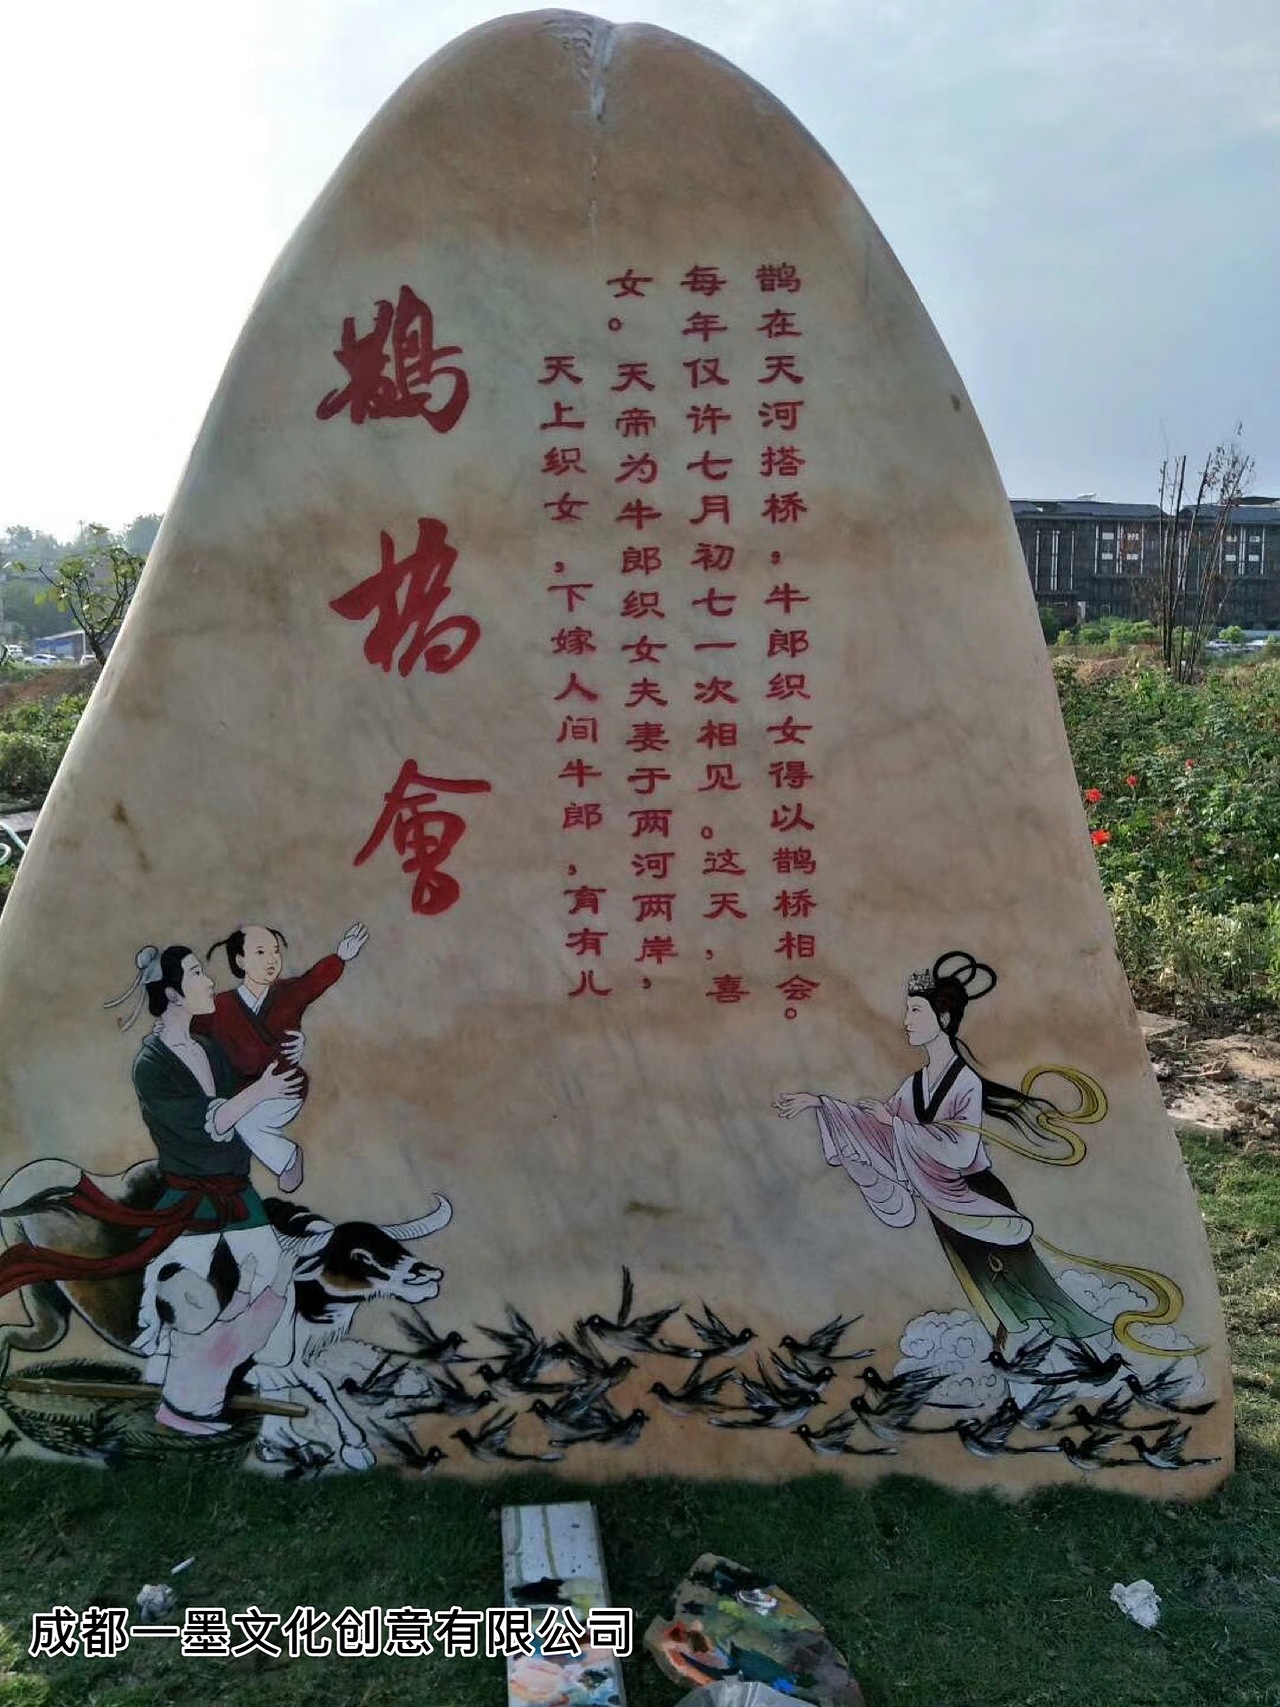 鵲橋會
天上织女，下嫁人间牛郎，育有儿
女。天帝为牛郎织女夫妻于两河两岸，
每年仅许七月初七一次相见。这天，喜
鹊在天河搭桥，牛郎织女得以鹊桥相会。
成都一墨文化创意有限公司